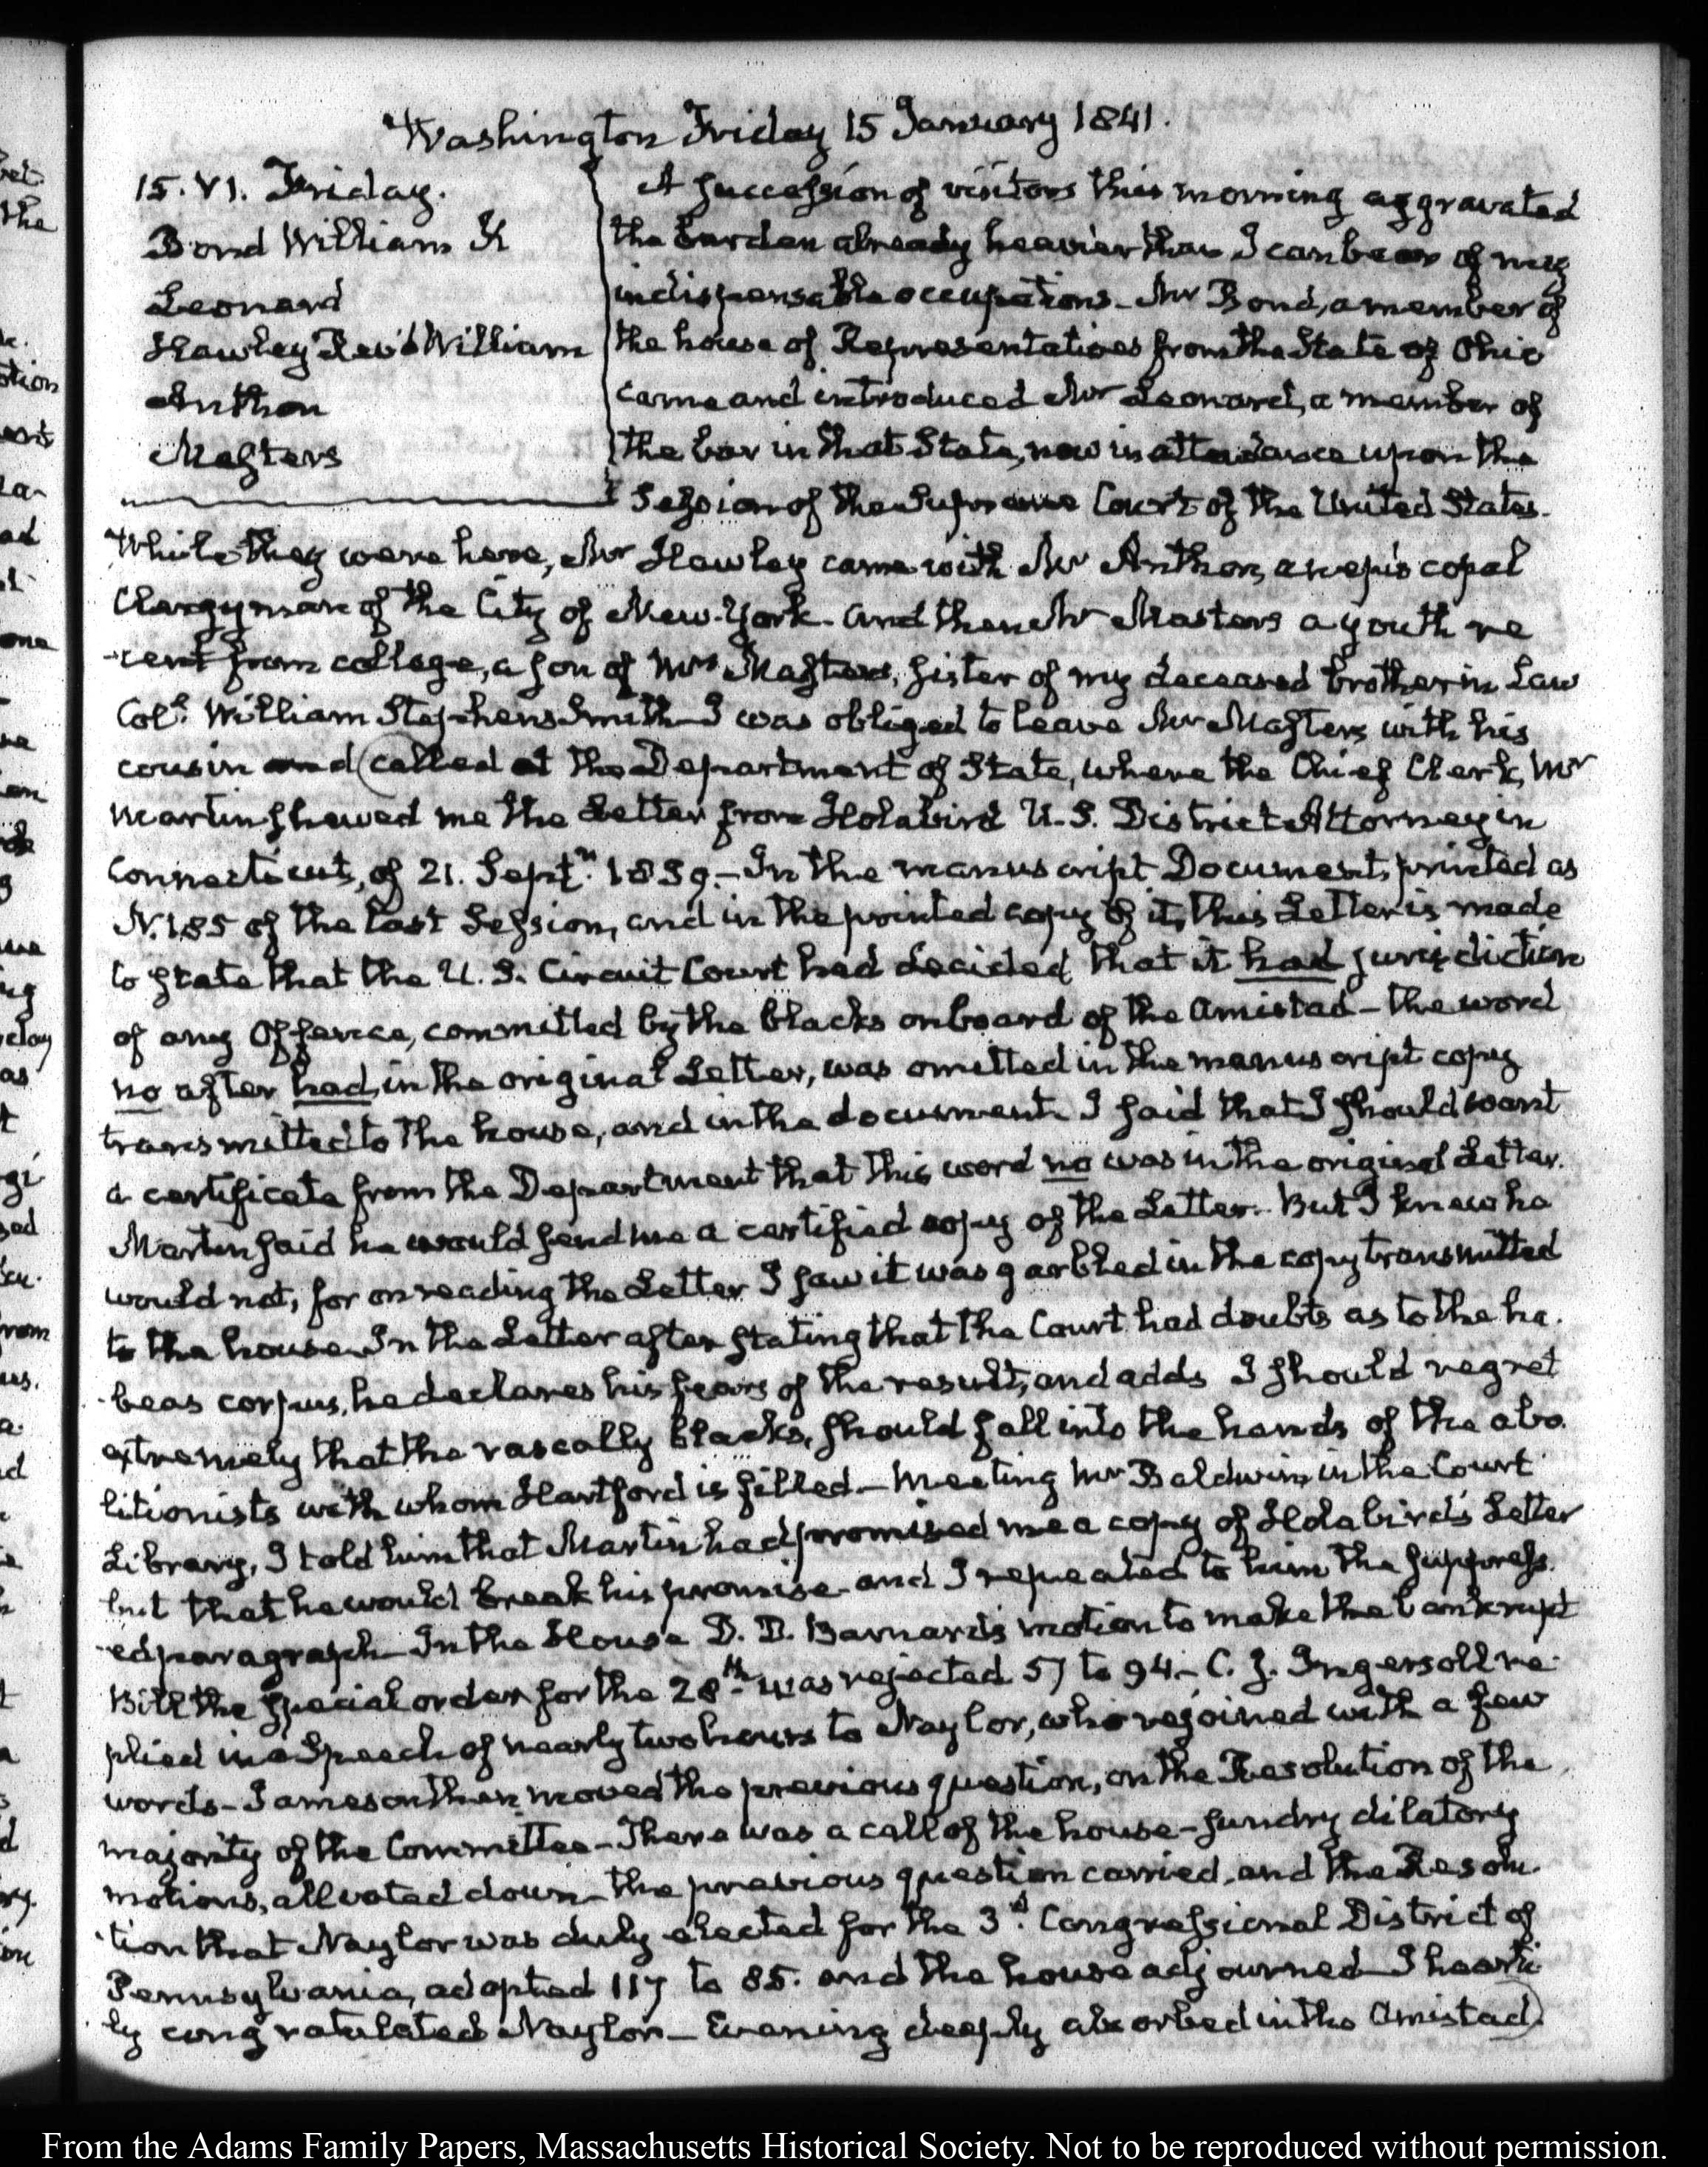 Washington Friday 15 January 1841.
15. VI. Friday.
Bond William K
Leonard
Hawley Revd William
Anthon
Masters
A succession of visitors this morning aggravated
the burden already heavier than I can bear of my
indispensable occupations. Mr Bond, a member of
the house of Representatives from the State of Ohio
came and introduced Mr Leonard, a member of
the bar in that State, now in attendance upon the
Session of the Supreme Court of the United States.
While they were here, Mr Hawley came with Mr Anthon, an episcopal
Clergyman of the City of New-York. And then Mr Masters a youth re
-cent from college, a son of Mrs Masters, sister of my deceased brother in Law
Coll. William Stephens Smith— I was obliged to leave Mr Masters with his
cousin and (called at the Department of State, where the Chief Clerk, Mr
Martin shewed me the Letter from Holabird U.S. District Attorney in
Connecticut, of 21. Septr. 1839.— In the manuscript Document, printed as
N. 185 of the last Session, and in the printed copy of it, this Letter is made
to state that the U.S. Circuit Court had decided that it had jurisdiction
of any Offence, committed by the blacks on board of the Amistad— the word
no after had, in the original Letter, was omitted in the manuscript copy
transmitted to the house, and in the document. I said that I should want
a certificate from the Department that this word no was in the original Letter.
Martin said he would send me a certified copy of the Letter. But I knew he
would not, for on reading the Letter I saw it was garbled in the copy transmitted
to the house. In the Letter after stating that the Court had doubts as to the ha-
beas corpus, he declares his fears of the result, and adds I should regret
extremely that the rascally blacks, should fall into the hands of the abo-
litionists with whom Hartford is filled.— Meeting Mr Baldwin, in the Court
Library, I told him that Martin had promised me a copy of Holabird's Letter
but that he would break his promise and I repeated to him the suppress-
ed paragraph— In the House D. D. Barnard's motion to make the bankrupt
Bill the special order for the 28th was rejected 57 to 94.— C. J. Ingersoll re-
plied in a Speech of nearly two hours to Naylor, who rejoined with a few
words— Jameson then moved the previous question, on the Resolution of the
majority of the Committee— There was a call of the house— sundry dilatory
motions, all voted down— the previous question carried, and the Resolu-
tion that Naylor was duly elected for the 3d. Congressional District of
Pennsylvania, adopted 117 to 85. and the house adjourned— I hearti-
ly congratulated Naylor— Evening deeply absorbed in the Amistad)
From the Adams Family Papers, Massachusetts Historical Society. Not to be reproduced without permission.